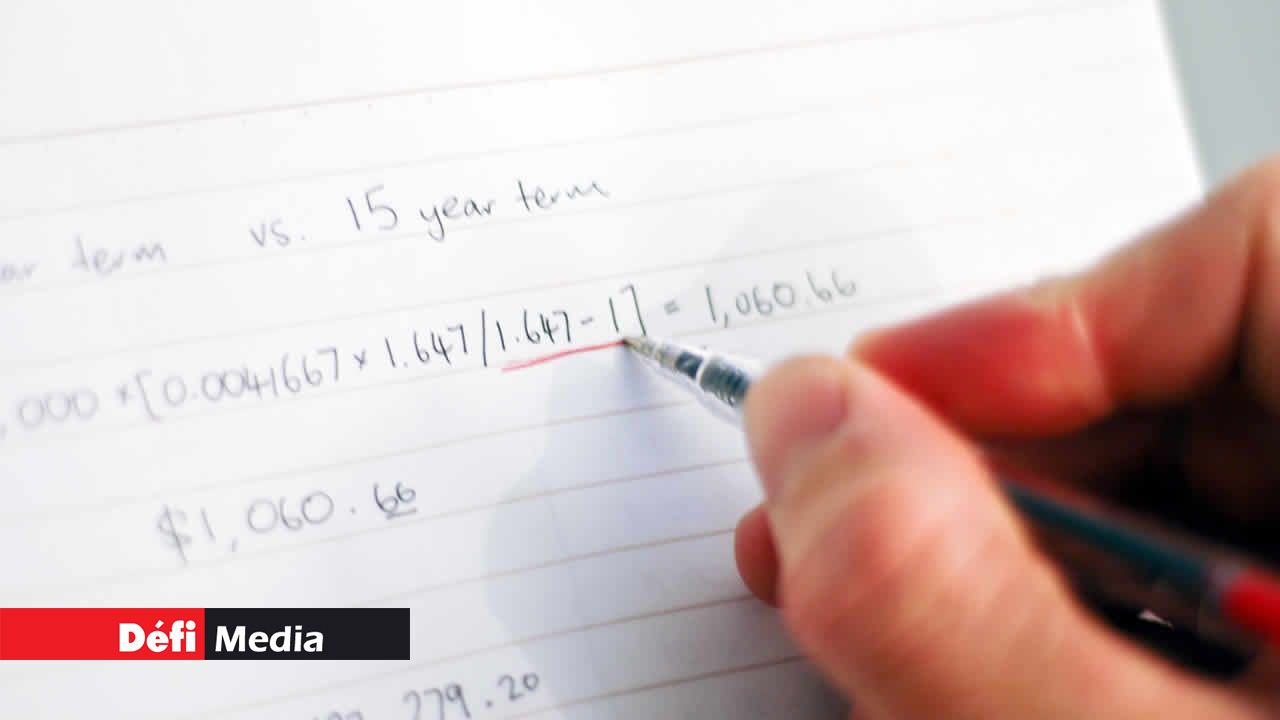 term vs. 15 year term
,000 × [0.0041667 × 1.647/1.647 - 1] = 1,060.66
$1,060.66
279.20
Défi Media